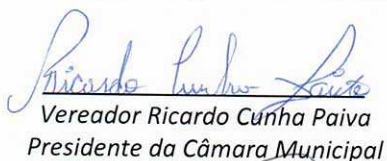 Ricardo Cunha
Vereador Ricardo Cunha Paiva
Presidente da Câmara Municipal